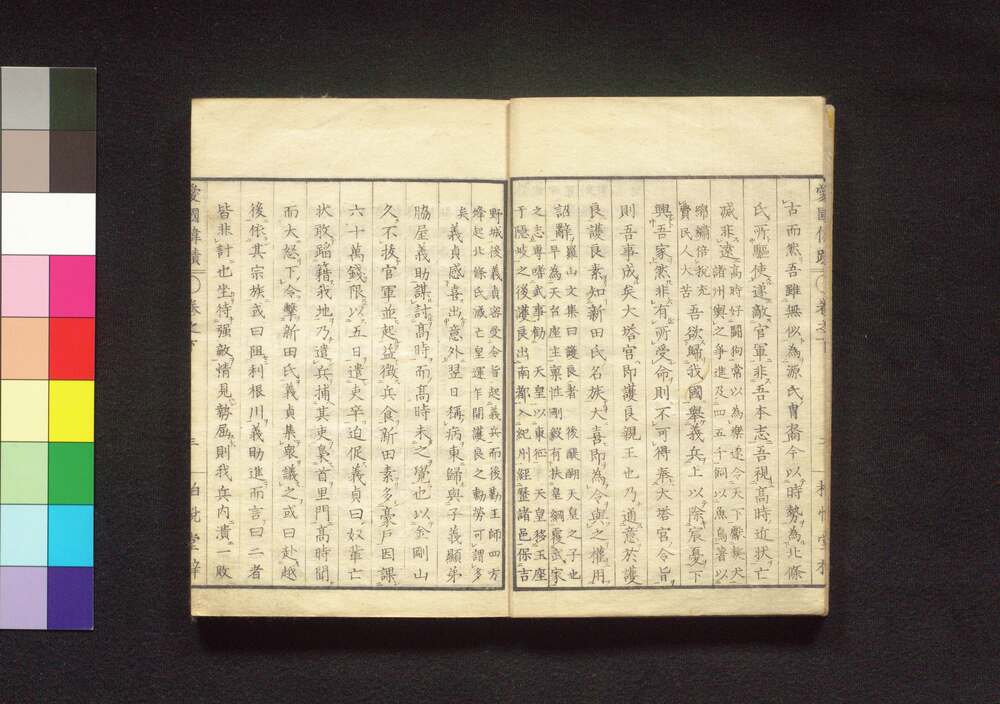 古而然吾雖無似為源氏冑裔今以時勢為北條
氏所驅使遂敵官軍非吾本志吾視高時近状亡
滅非遠高時好鬪狗常以為樂遂令天下獻奬犬
諸州輿之爭進及四五千飼以魚鳥著以
綿繡倍扼充
賣民人大苦吾欲歸我國舉義兵上以除宸憂下
興吾家然非有所受命則不可得蓋大塔宮令旨
則吾事成矣大塔宮即護良親王也乃通意於護
良護良素知新田氏名族大喜即為令與之權用
詔辭羅山文集曰護良者後醍醐天皇之子也
早為天台座主稟性剛毅有扶皇綱覆武家
之志專嗜武事勸天皇以東征天皇移玉座
于隱岐之後護良出南都入紀州經歷諸邑保吉
野城後義貞容受令旨起義兵而後勤王師四方
烽起北條氏滅亡皇運乍開護良之勤勞可謂多
矣義貞感喜出意外翌日稱病東歸與子義顯弟
脇屋義助謀討高時而高時未之覺也以金剛山
久不拔官軍並起益徵兵食新田素多豪戶因課
六十萬錢限以五日遣吏卒迫促義貞曰奴輩亡
狀敢蹈藉我地乃遣兵捕其吏梟首里門高時聞
而大怒下令擊新田氏義貞集衆議之或曰赴越
後依其宗族或曰阻利根川義助進而言曰二者
皆非計也坐待强敵情見勢屈則我兵內潰一敗
愛國偉蹟 卷之